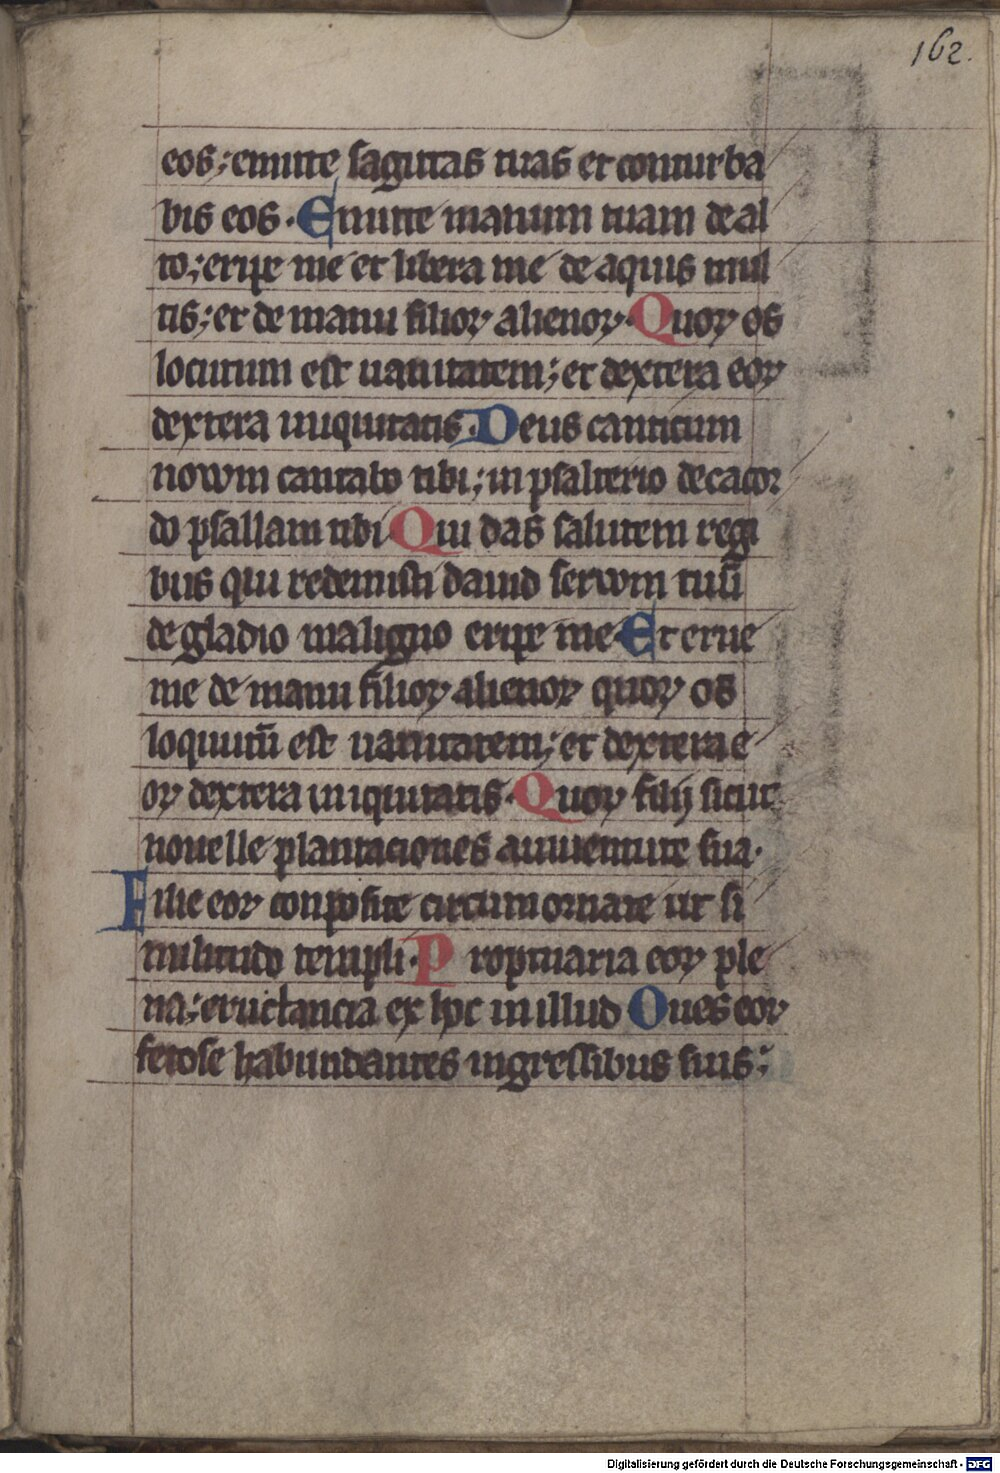 162.
eos; emitte sagittas tuas et conturba
bis eos. Emitte manum tuam de al
to; eripe me et libera me de aquis mul
tis; et de manu filioꝝ alienoꝝ. Quoꝝ os
locutum est uanitatem; et dextera eoꝝ
dextera iniquitatis. Deus canticum
nowm cantabo tibi; in psalterio decacor
do psallam tibi Qui das salutem regi
bus qui redemisti dauid serwm tuū
de gladio maligno eripe me Et erue
me de manu filioꝝ alienoꝝ quoꝝ os
loquutū est uanitatem; et dextera e
oꝝ dextera iniquitatis. Quoꝝ filij sicut
nouelle plantaciones aiuuentute sua.
Filie eoꝝ conposite circumornate ut si
militudo templi. Proptuaria eoꝝ ple
na; eructancia ex hoc in illud Oues eoꝝ
fetose habundantes ingressibus suis:
Digitalisierung gefördert durch die Deutsche Forschungsgemeinschaft - DFG